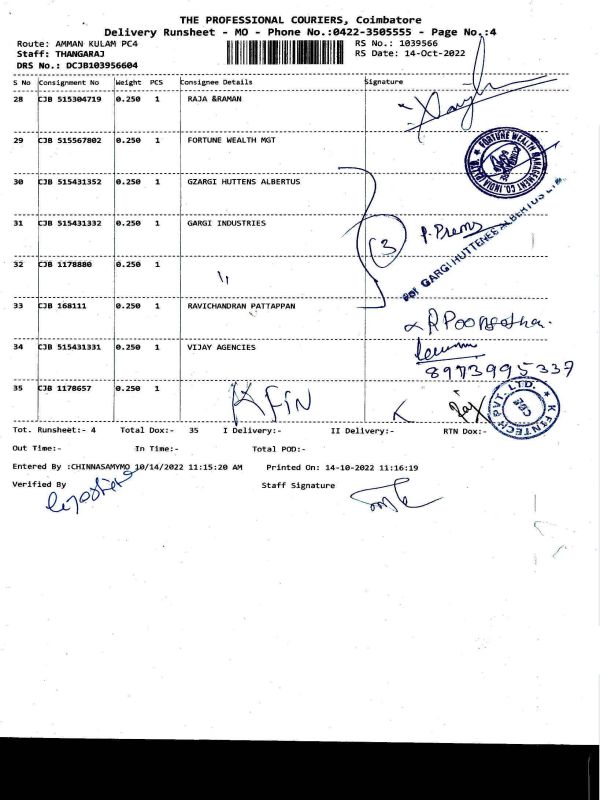 THE PROFESSIONAL COURIERS, Coimbatore
Delivery Runsheet - MO - Phone No.:0422-3505555 - Page No.:4
Route: AMMAN KULAM PC4
RS No.: 1039566
Staff: THANGARAJ
RS Date: 14-Oct-2022
DRS No.: DCJB103956604
S No Consignment No Weight PCS Consignee Details Signature
28 CJB 515304719 0.250 1 RAJA &RAMAN
29 CJB 515567802 0.250 1 FORTUNE WEALTH MGT
FORTUNE WEALTH MANAGEMENT CO. INDIA
30 CJB 515431352 0.250 1 GZARGI HUTTENS ALBERTUS
31 CJB 515431332 0.250 1 GARGI INDUSTRIES
3
P. Prems
GARGI HUTTENES ALBERTUS
32 CJB 1178880 0.250 1 "
33 CJB 168111 0.250 1 RAVICHANDRAN PATTAPPAN
34 CJB 515431331 0.250 1 VIJAY AGENCIES
8973995337
35 CJB 1178657 0.250 1 KFIN
KFINTECH PVT. LTD.
CBE
Tot. Runsheet:- 4 Total Dox:- 35 I Delivery:- II Delivery:- RTN Dox:-
Out Time:- In Time:- Total POD:-
Entered By :CHINNASAMYMO 10/14/2022 11:15:20 AM Printed On: 14-10-2022 11:16:19
Verified By Staff Signature